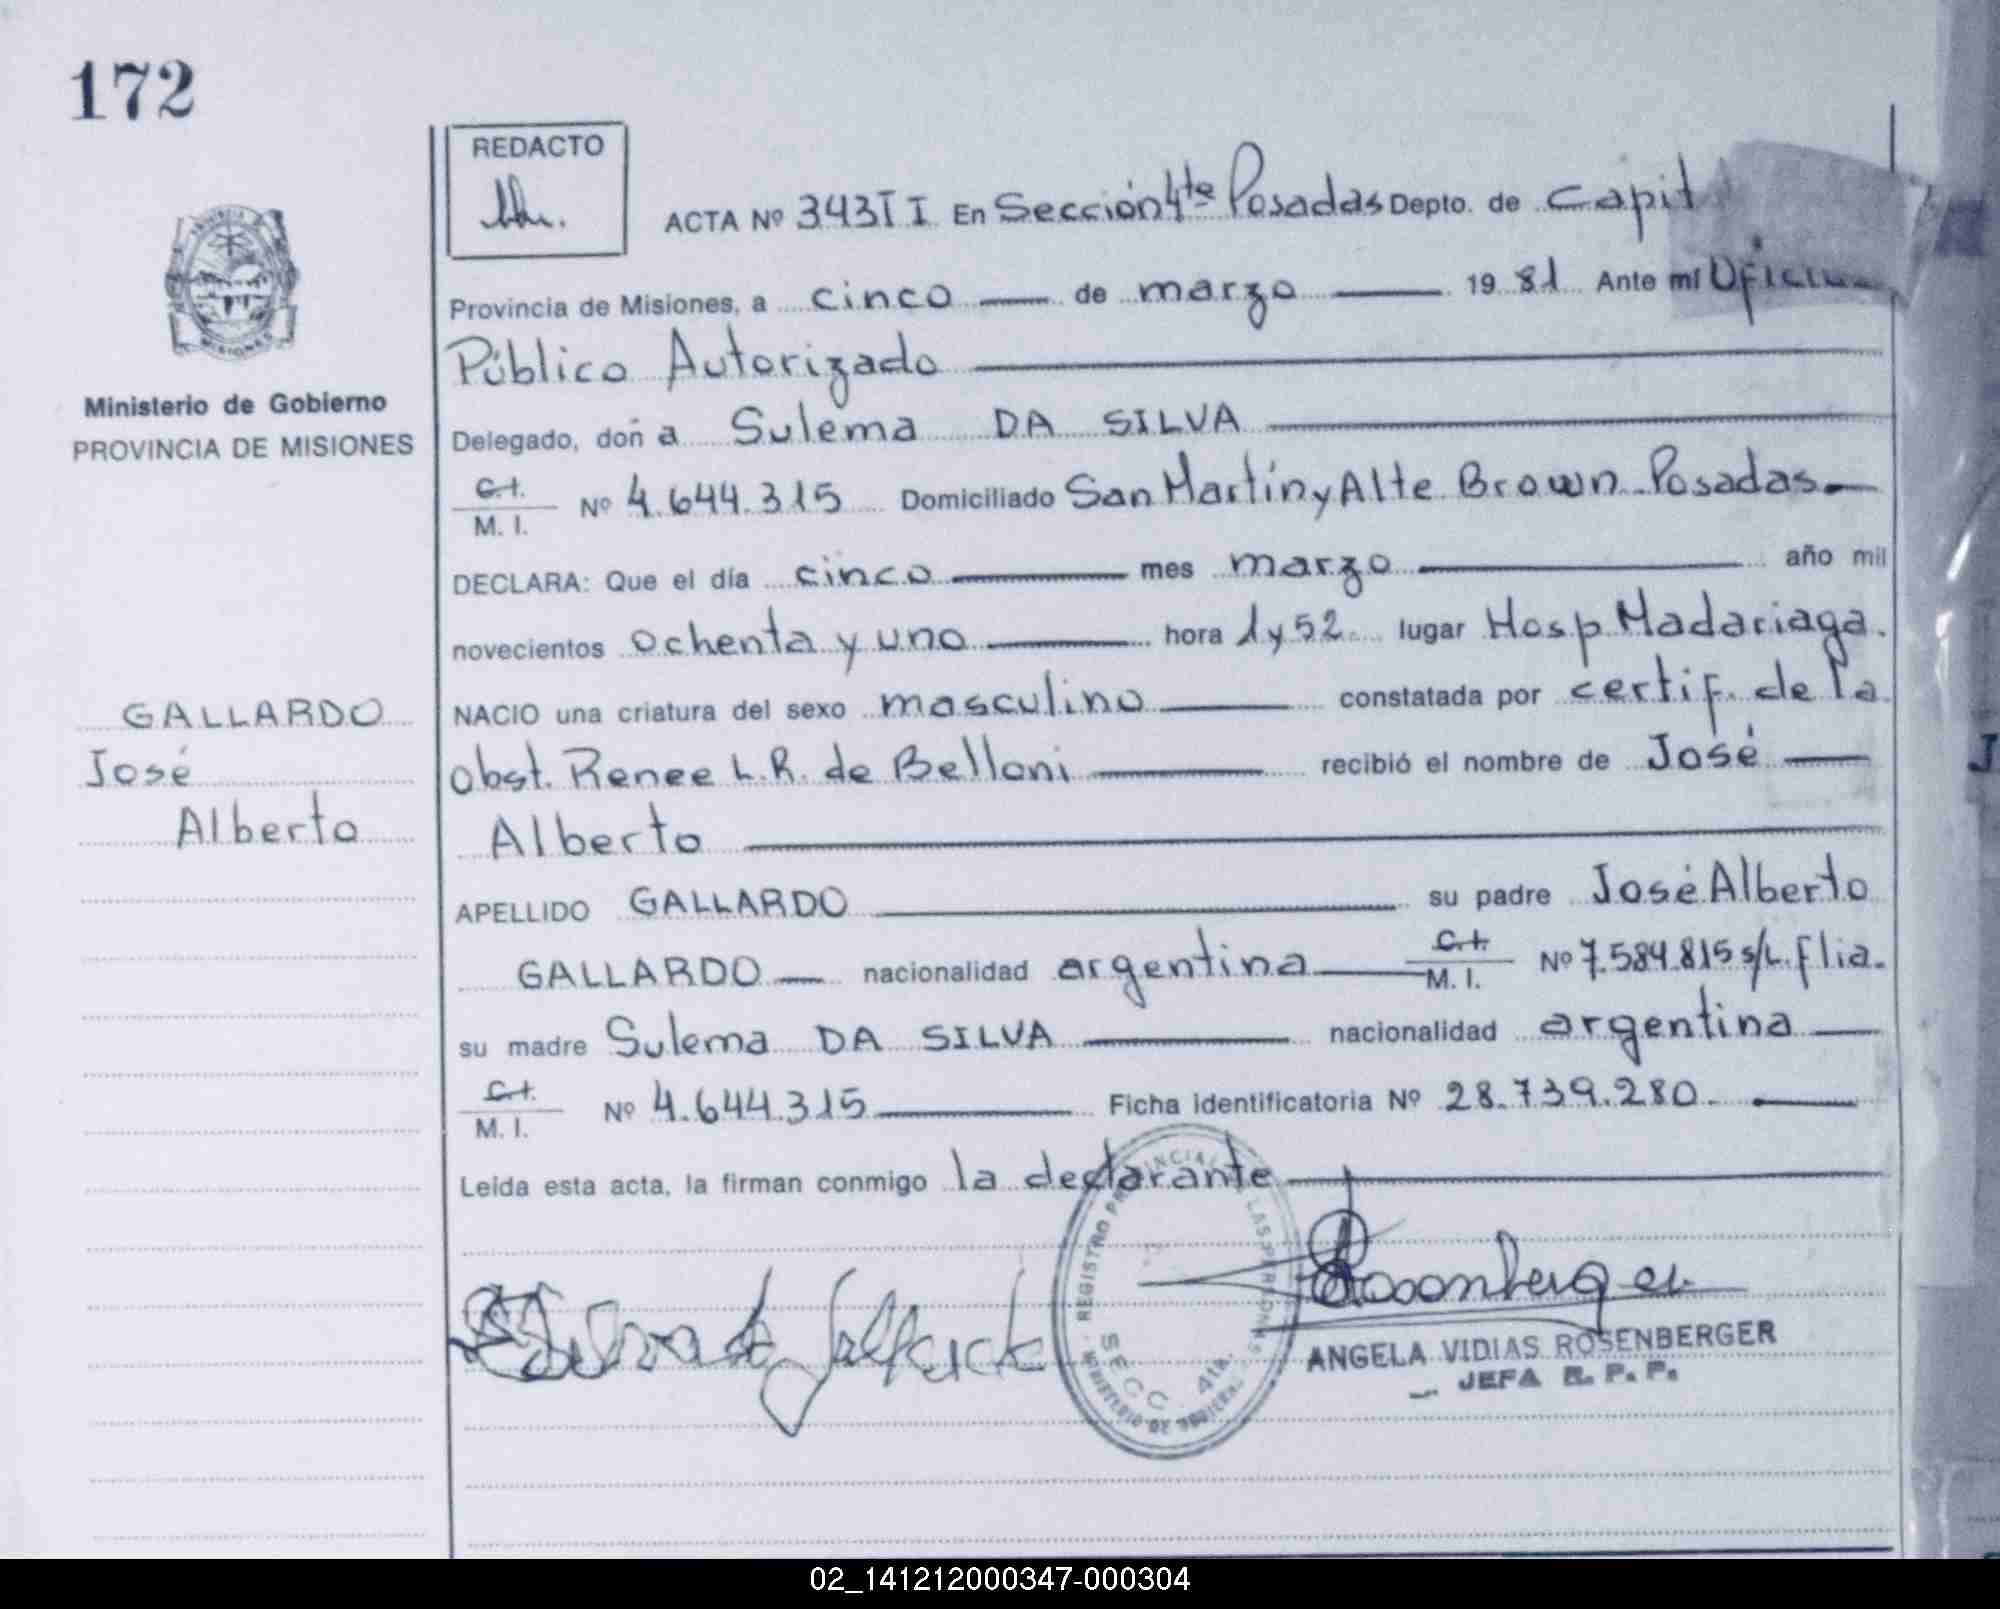 172
REDACTO
ACTA Nº 343 II En Sección 4ta Posadas Depto. de Capit
Provincia de Misiones, a cinco de marzo 1981 Ante mí Oficial
Público Autorizado
MISIONES
Ministerio de Gobierno
PROVINCIA DE MISIONES
Delegado, doña Sulema DA SILVA
C.I.
M. I. Nº 4.644.315 Domiciliado San Martín y Alte Brown Posadas
DECLARA: Que el día cinco mes marzo año mil
novecientos ochenta y uno hora 1 y 52 lugar Hosp Madariaga.
GALLARDO
José
Alberto
NACIO una criatura del sexo masculino constatada por certif. de la
obst. Renee L.R. de Belloni recibió el nombre de José
Alberto
APELLIDO GALLARDO su padre José Alberto
GALLARDO nacionalidad argentina C.I. M. I. Nº 7.584.815 s/L. flia.
su madre Sulema DA SILVA nacionalidad argentina
C.I.
M. I. Nº 4.644.315 Ficha identificatoria Nº 28.739.280
Leída esta acta, la firman conmigo la declarante
REGISTRO PROVINCIAL DE LAS PERSONAS
SECC. 4ta.
MINISTERIO DE GOBIERNO
Rosenberger
ANGELA VIDIAS ROSENBERGER
JEFA R. P. P.
J
02_141212000347-000304